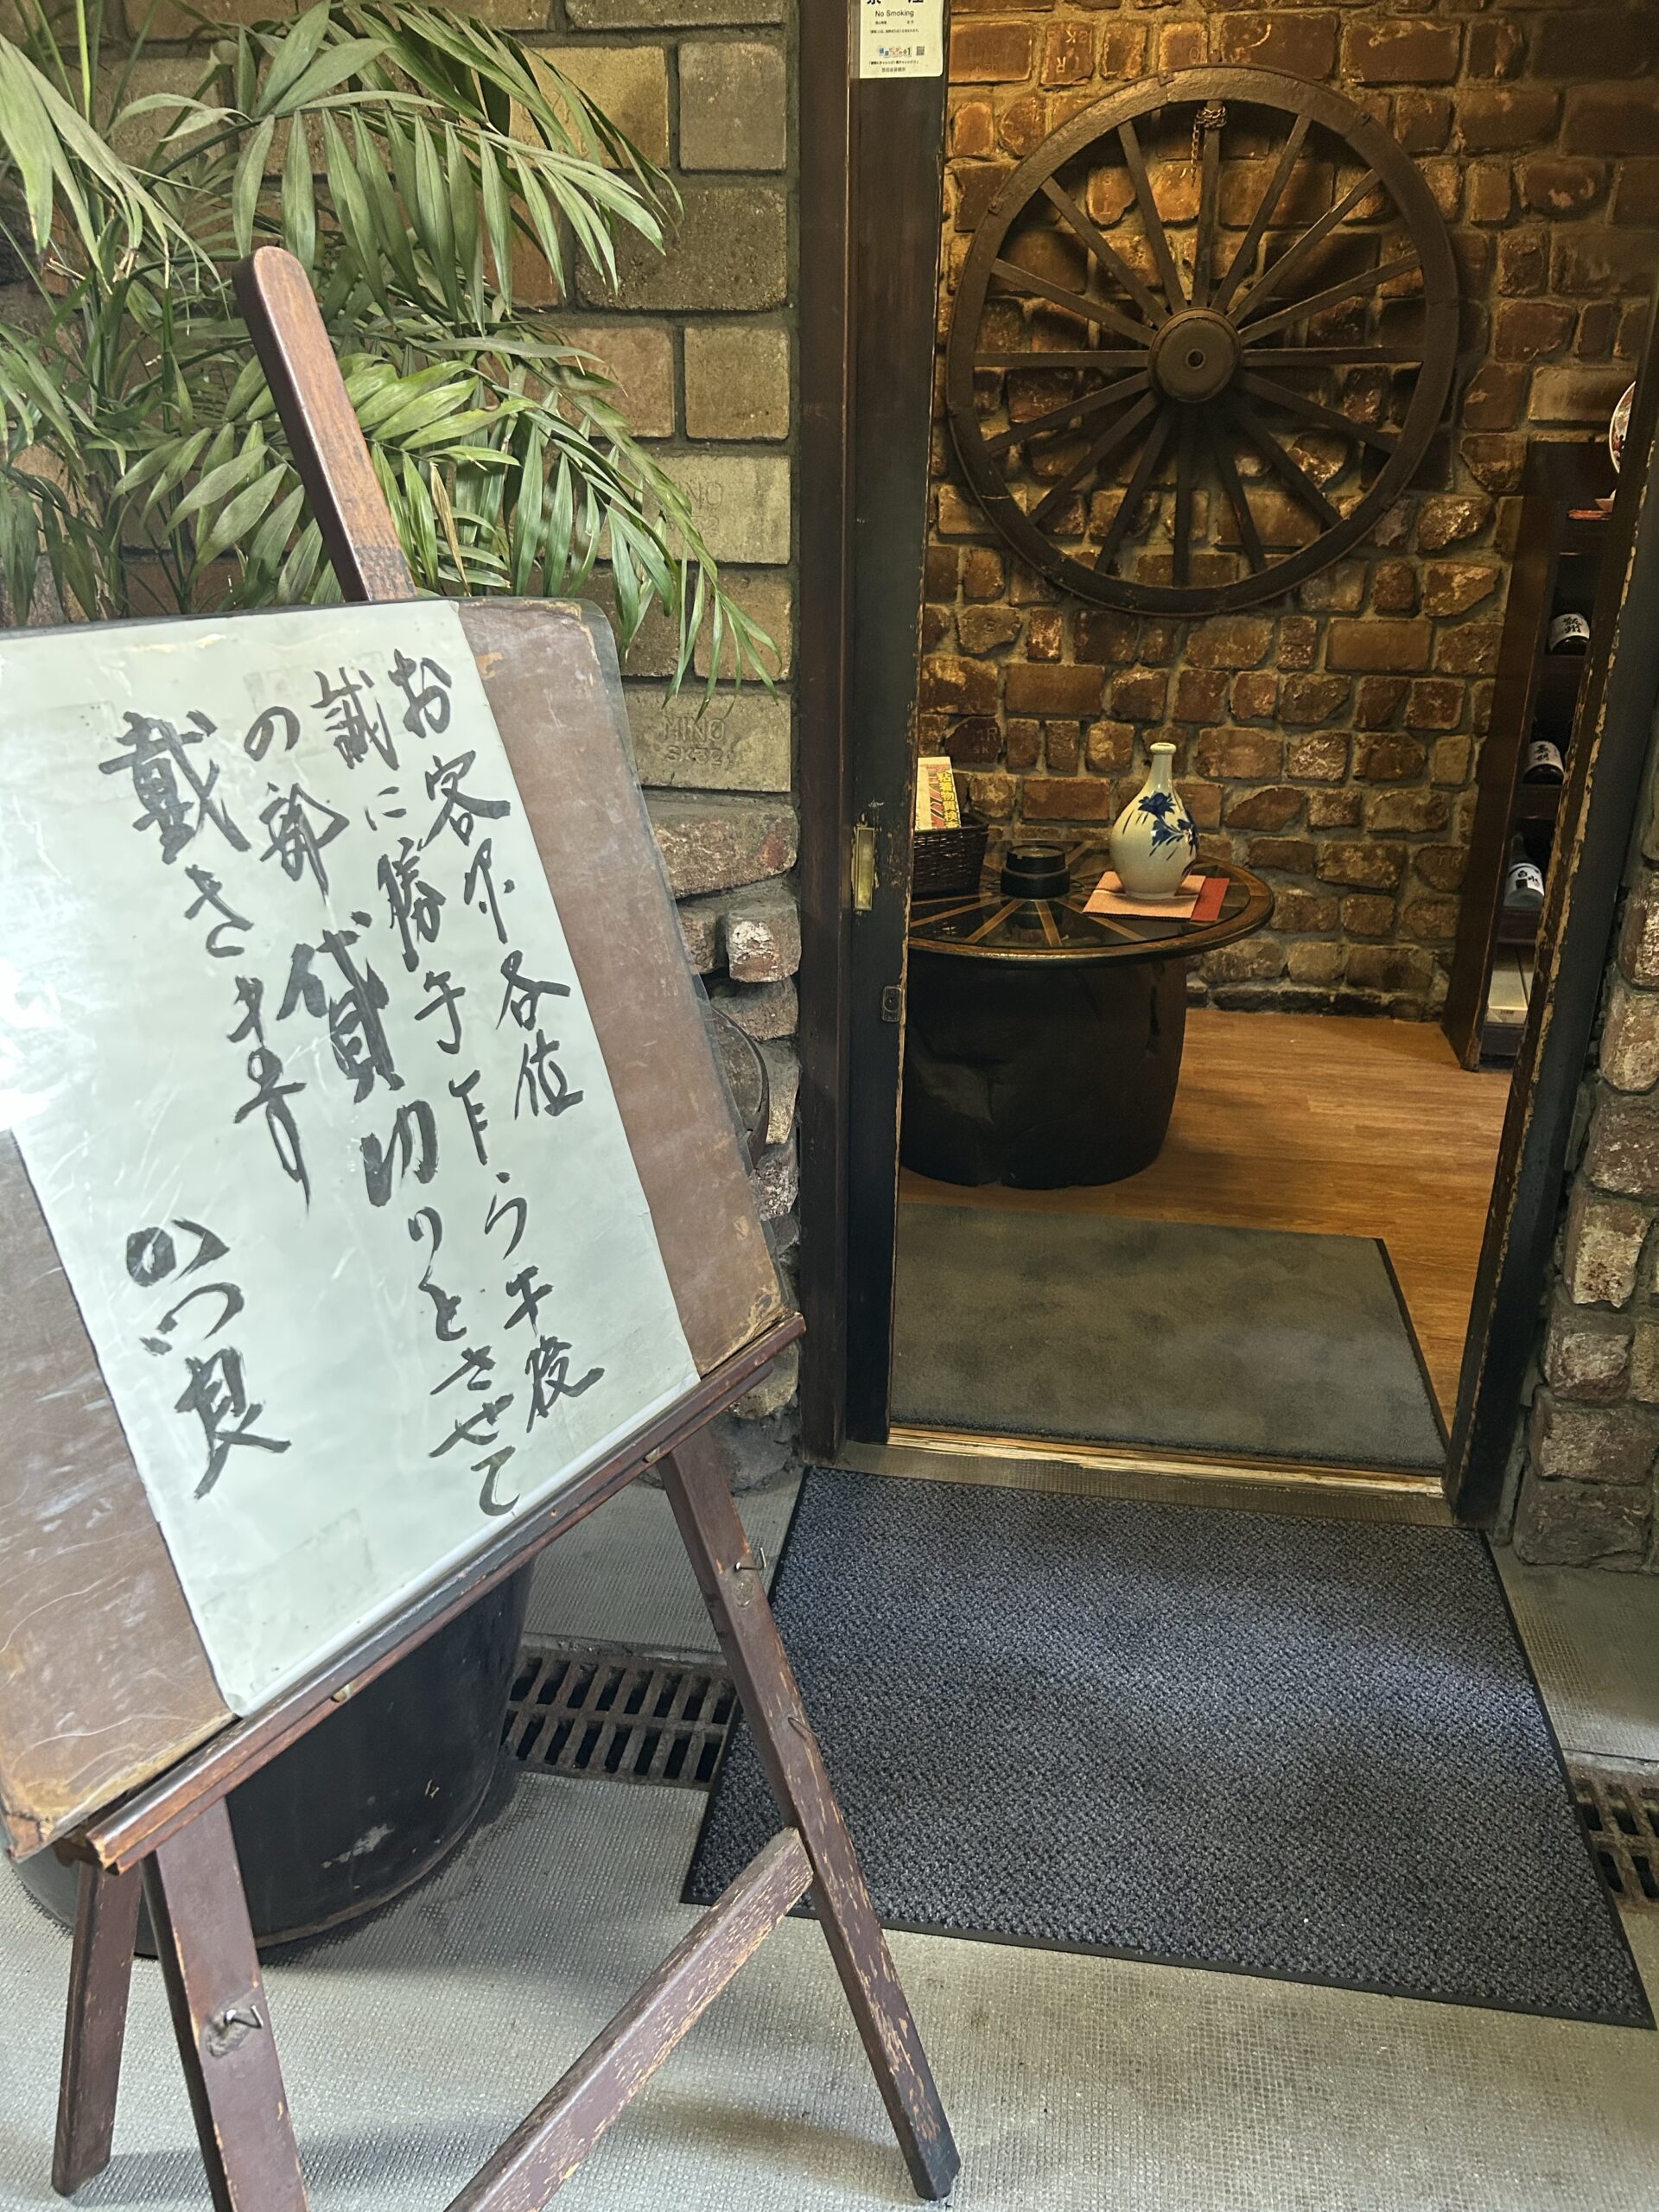 お客様各位
誠に勝手乍ら午後
の部貸切りとさせて
戴きます
かつ良
No Smoking
HINO
SK32